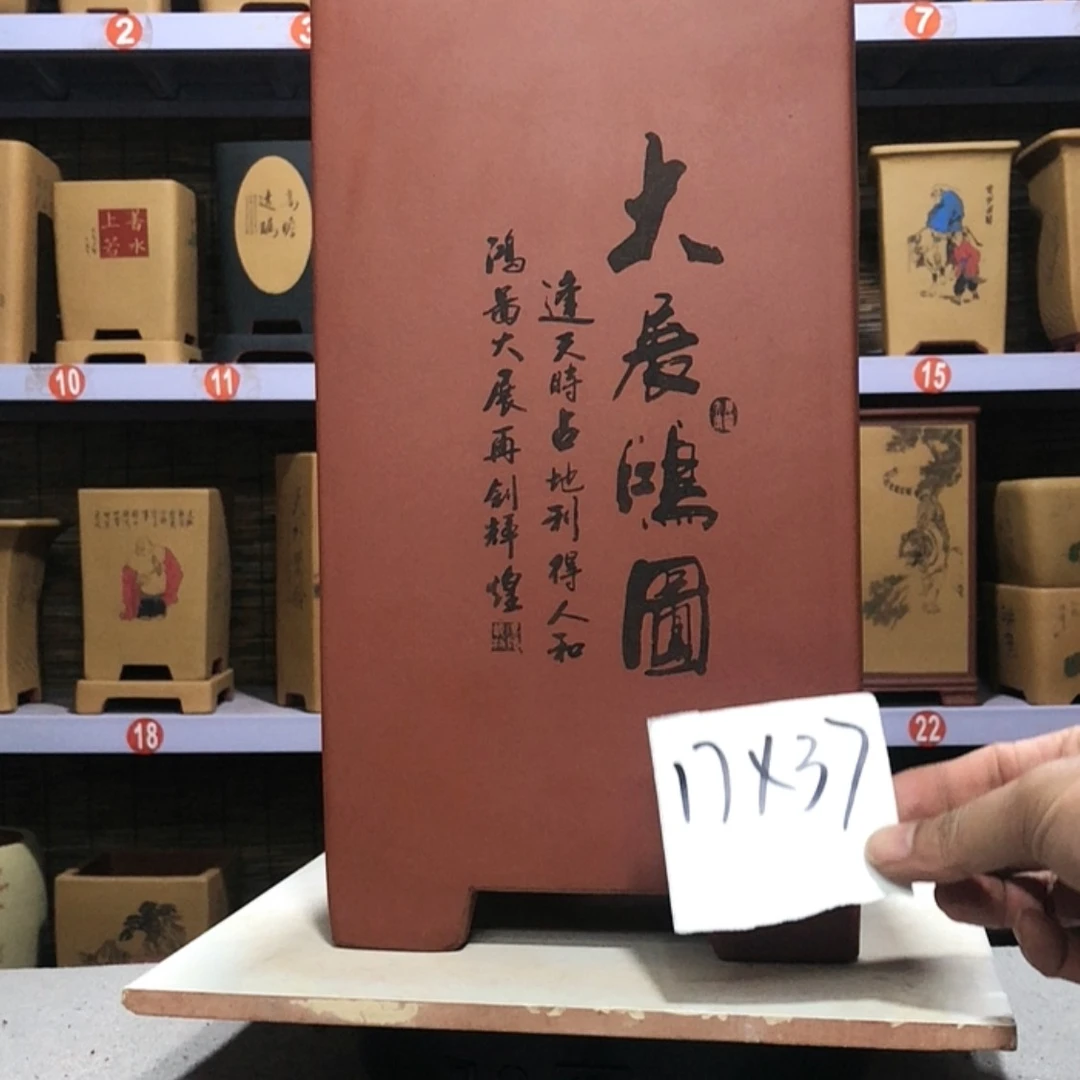 大展鴻圖
逢天時占地利得人和
鴻圖大展再創輝煌
17X37
2
3
7
10
11
15
18
22
善水
上若
高瞻
遠矚